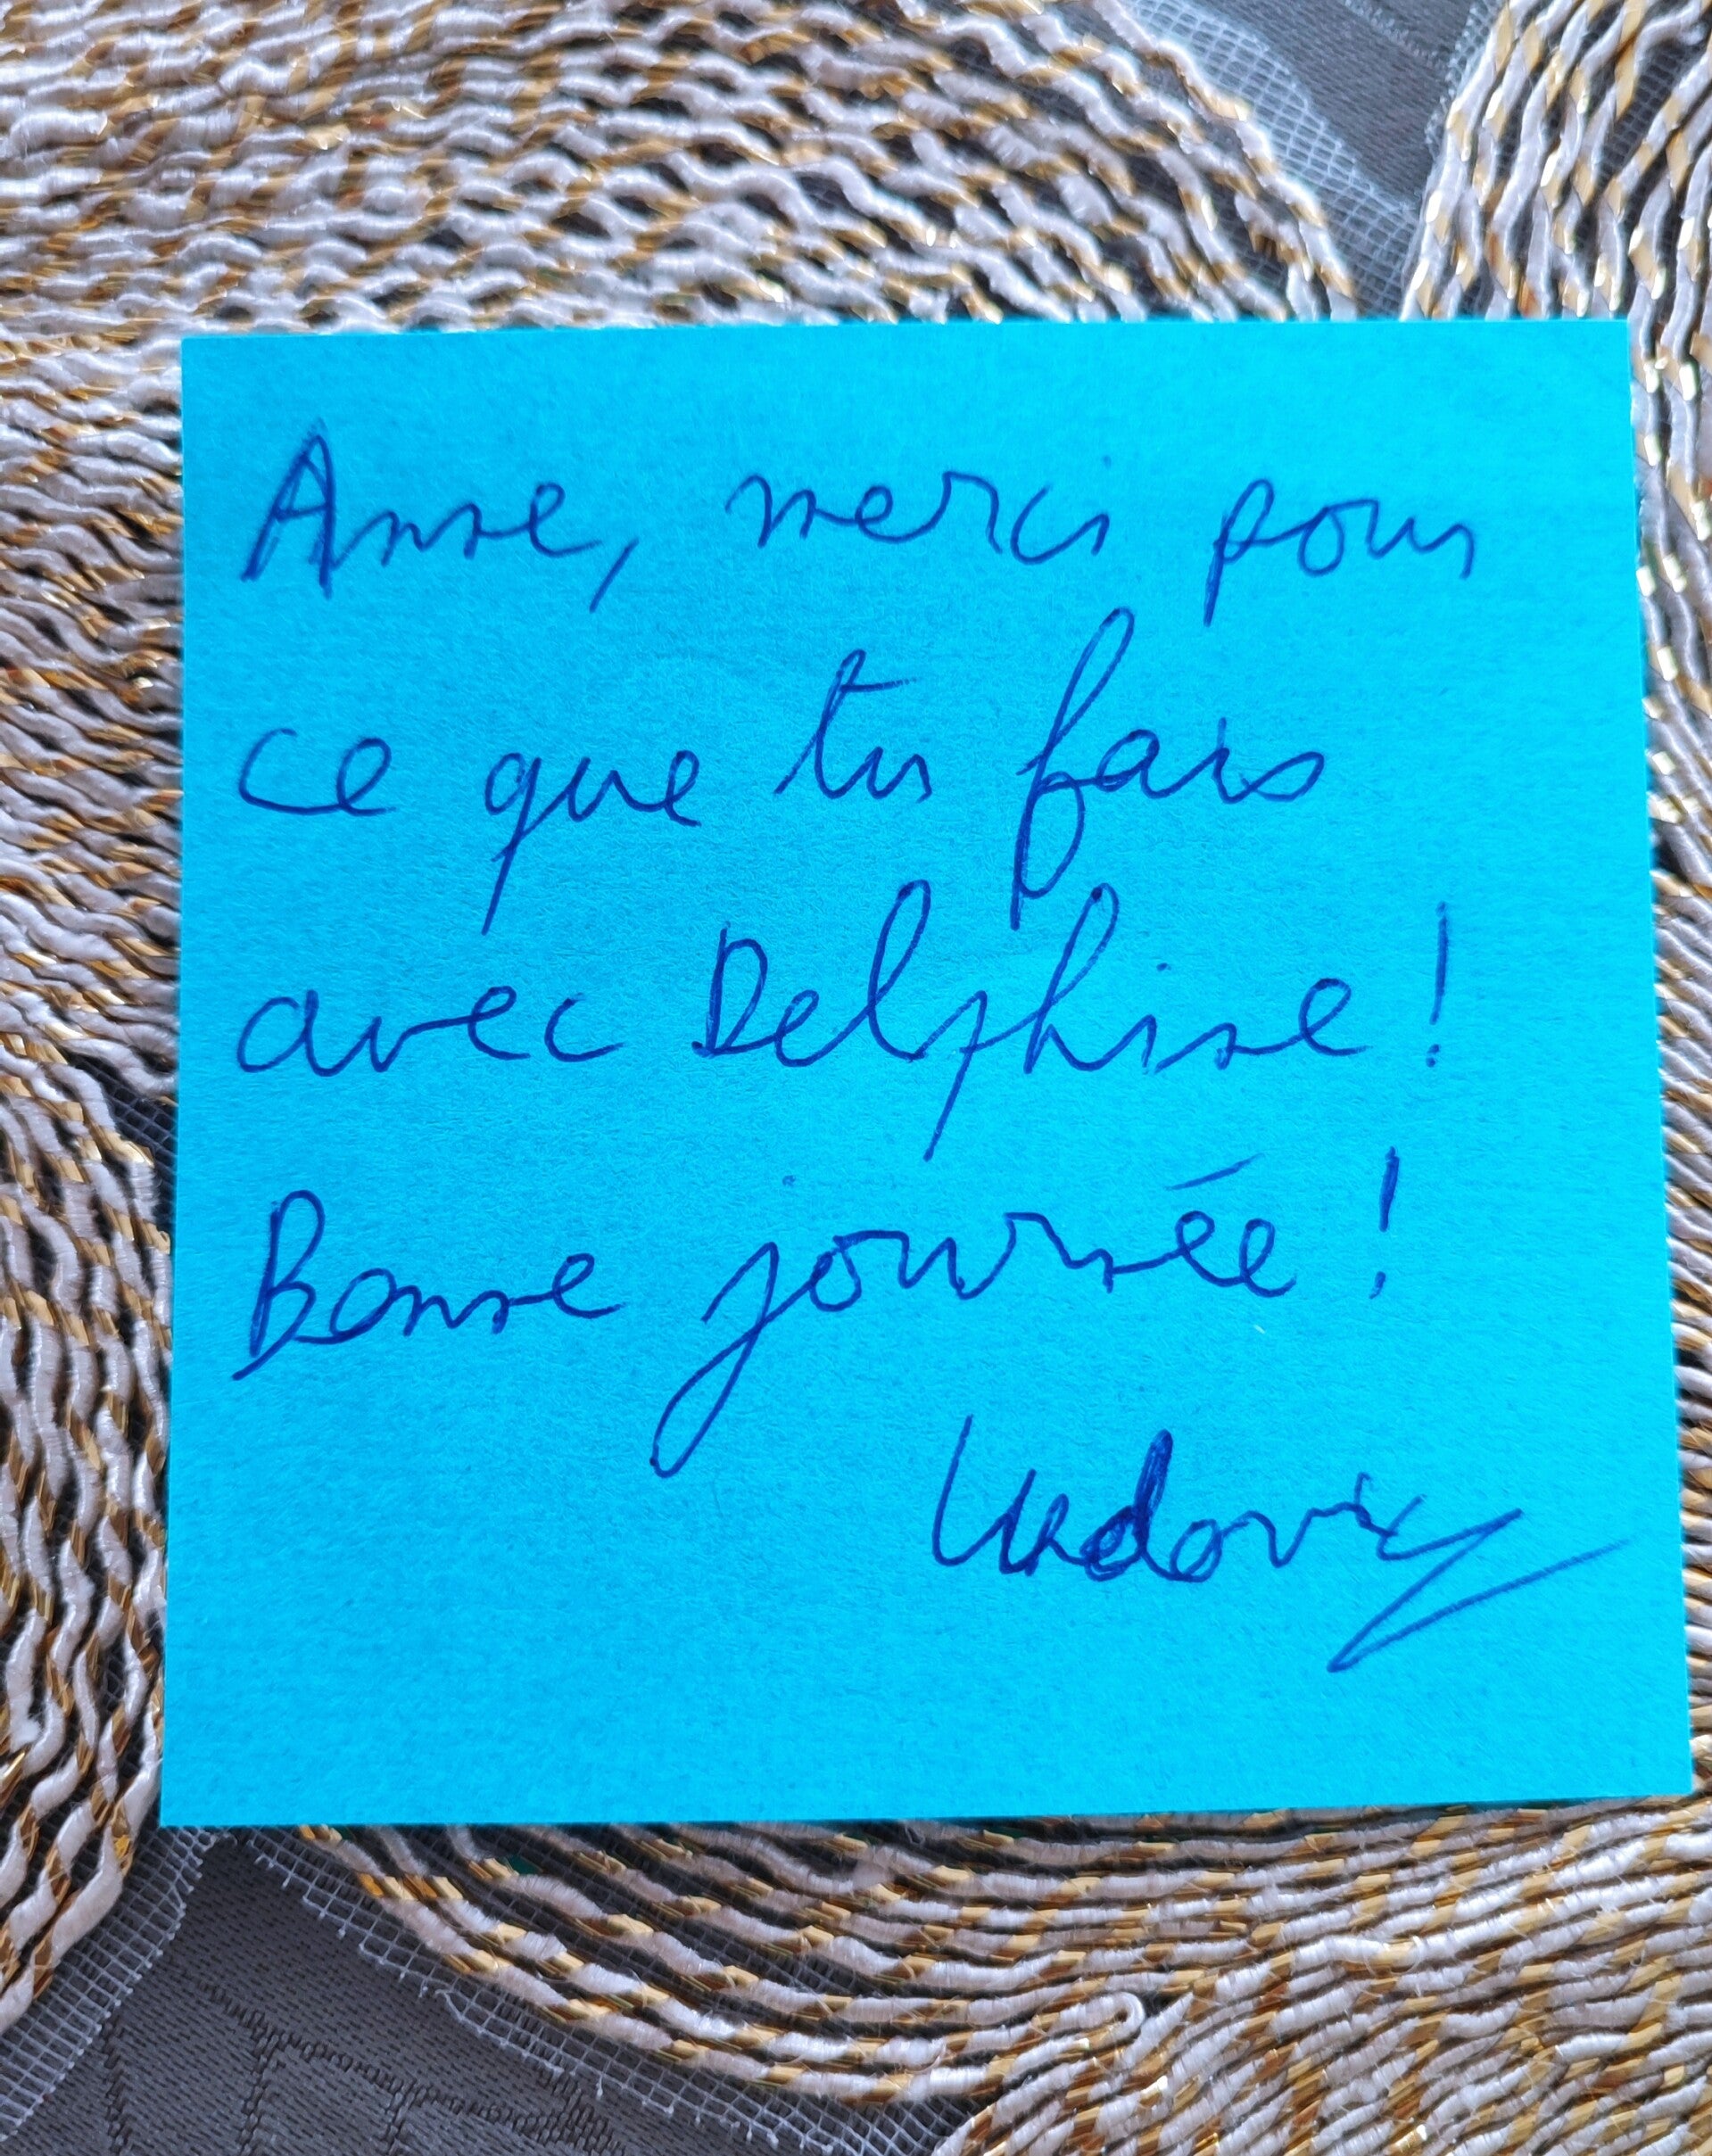 Anne, merci pour
ce que tu fais
avec Delphine !
Bonne journée !
Ludovic